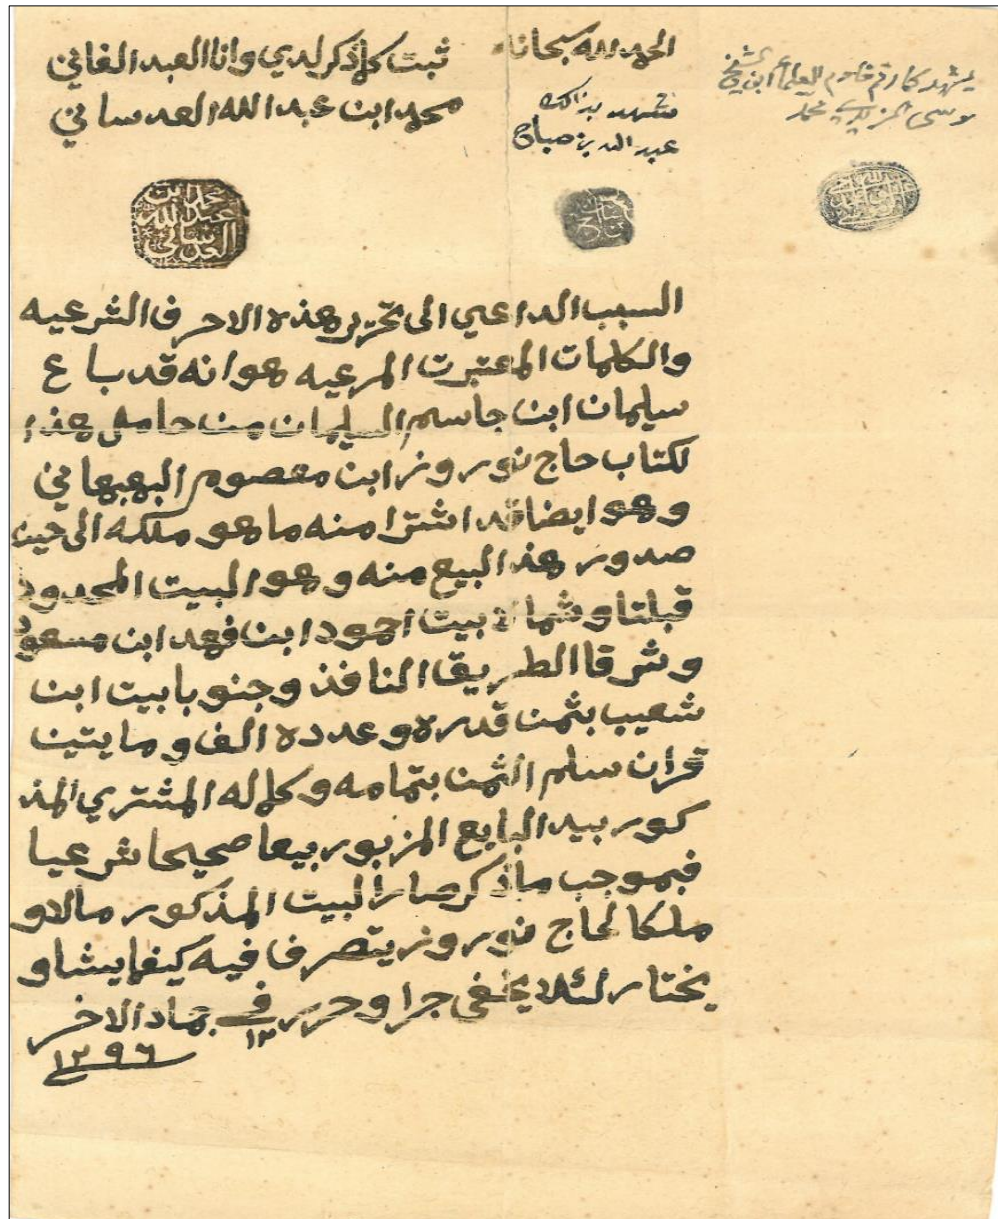 الحمد لله سبحانه
ثبت كلما ذكر لدي وانا العبد الفاني
محمد ابن عبدالله العدساني
نشهد بذالك
عبدالله بن صباح
يشهد كما رقم خادم العلماء ابن الشيخ
موسى المزيدي محمد
محمد ابن
عبدالله
العدساني
السبب الداعي الى تحرير هذه الاحرف الشرعيه
والكلمات المعتبرت المرعيه هو انه قد باع
سليمان ابن جاسم السليمان من حامل هذا
لكتاب حاج نوروز ابن معصوم البهبهاني
وهو ايضا قد اشترا منه ما هو ملكه الى حين
صدور هذ البيع منه وهو البيت المحدود
قبلتا وشمالا بيت احمود ابن فهد ابن مسعود
وشرقا الطريق النافذ وجنوبا بيت ابن
شعيب بثمن قدره وعدده الف ومايتين
قران سلم الثمن بتمامه وكماله المشتري المذ
كور بيد البايع المزبور بيعا صحيحا شرعيا
فبموجب ما ذكر صار البيت المذكور مالا و
ملكا لحاج نوروز يتصرف فيه كيفما يشا و
يختار لئلا يخفى جرا وحرر في ١٢ جماد الاخر
١٢٩٦